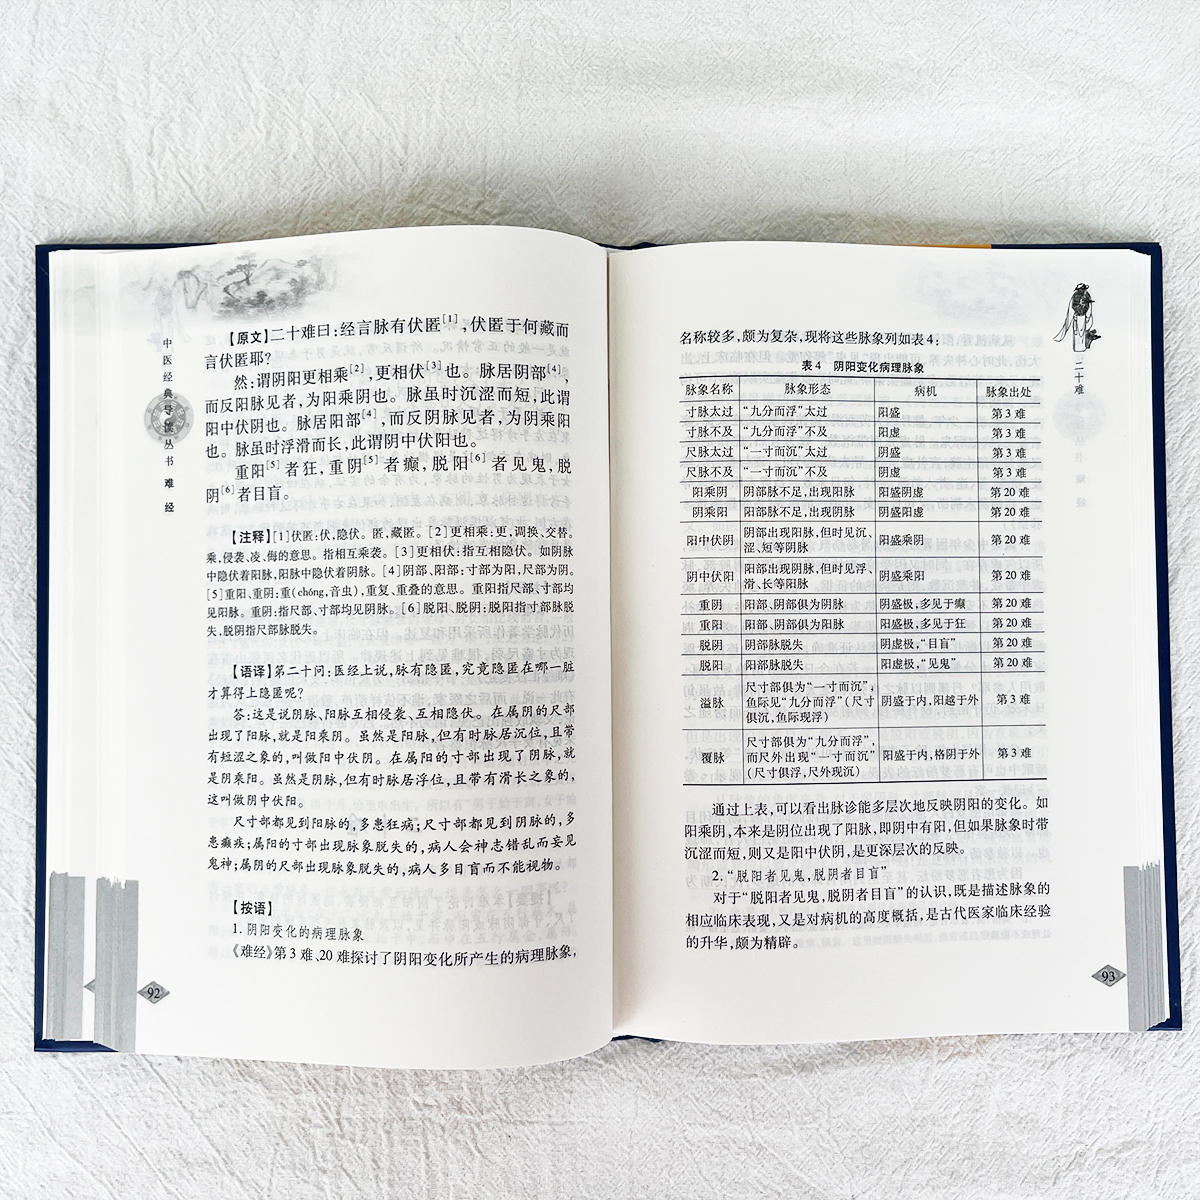 中医经典导读丛书 难经
【原文】二十难曰:经言脉有伏匿[1],伏匿于何藏而
言伏匿耶?
然:谓阴阳更相乘[2],更相伏[3]也。脉居阴部[4],
而反阳脉见者,为阳乘阴也。脉虽时沉涩而短,此谓
阳中伏阴也。脉居阳部[4],而反阴脉见者,为阴乘阳
也。脉虽时浮滑而长,此谓阴中伏阳也。
重阳[5]者狂,重阴[5]者癫,脱阳[6]者见鬼,脱
阴[6]者目盲。
【注释】[1]伏匿:伏,隐伏。匿,藏匿。[2]更相乘:更,调换、交替。
乘,侵袭、凌、侮的意思。指相互乘袭。[3]更相伏:指互相隐伏。如阴脉
中隐伏着阳脉,阳脉中隐伏着阴脉。[4]阴部、阳部:寸部为阳,尺部为阴。
[5]重阳、重阴:重(chóng,音虫),重复、重叠的意思。重阳指尺部、寸部均
见阳脉。重阴:指尺部、寸部均见阴脉。[6]脱阳、脱阴:脱阳指寸部脉脱
失,脱阴指尺部脉脱失。
【语译】第二十问:医经上说,脉有隐匿,究竟隐匿在哪一脏
才算得上隐匿呢?
答:这是说阴脉、阳脉互相侵袭、互相隐伏。在属阴的尺部
出现了阳脉,就是阳乘阴。虽然是阳脉,但有时脉居沉位,且带
有短涩之象的,叫做阳中伏阴。在属阳的寸部出现了阴脉,就
是阴乘阳。虽然是阴脉,但有时脉居浮位,且带有滑长之象的,
这叫做阴中伏阳。
尺寸部都见到阳脉的,多患狂病;尺寸部都见到阴脉的,多
患癫疾;属阳的寸部出现脉象脱失的,病人会神志错乱而妄见
鬼神;属阴的尺部出现脉象脱失的,病人多目盲而不能视物。
【按语】
1. 阴阳变化的病理脉象
《难经》第3难、20难探讨了阴阳变化所产生的病理脉象,
92
二十难
名称较多,颇为复杂,现将这些脉象列如表4:
表4 阴阳变化病理脉象
脉象名称 脉象形态 病机 脉象出处
寸脉太过 “九分而浮”太过 阳盛 第3难
寸脉不及 “九分而浮”不及 阳虚 第3难
尺脉太过 “一寸而沉”太过 阴盛 第3难
尺脉不及 “一寸而沉”不及 阴虚 第3难
阳乘阴 阴部脉不足,出现阳脉 阳盛阴虚 第20难
阴乘阳 阳部脉不足,出现阴脉 阴盛阳虚 第20难
阳中伏阴 阴部出现阳脉,但时见沉、
涩、短等阴脉 阳盛乘阴 第20难
阴中伏阳 阳部出现阴脉,但时见浮、
滑、长等阳脉 阴盛乘阳 第20难
重阴 阳部、阴部俱为阴脉 阴盛极,多见于癫 第20难
重阳 阳部、阴部俱为阳脉 阳盛极,多见于狂 第20难
脱阴 阴部脉脱失 阴虚极,“目盲” 第20难
脱阳 阳部脉脱失 阳虚极,“见鬼” 第20难
溢脉 尺寸部俱为“一寸而沉”,
鱼际见“九分而浮”(尺寸
俱沉,鱼际现浮) 阴盛于内,阳越于外 第3难
覆脉 尺寸部俱为“九分而浮”,
而尺外出现“一寸而沉”
(尺寸俱浮,尺外现沉) 阳盛于内,格阴于外 第3难
通过上表,可以看出脉诊能多层次地反映阴阳的变化。如
阳乘阴,本来是阴位出现了阳脉,即阴中有阳,但如果脉象时带
沉涩而短,则又是阳中伏阴,是更深层次的反映。
2. “脱阳者见鬼,脱阴者目盲”
对于“脱阳者见鬼,脱阴者目盲”的认识,既是描述脉象的
相应临床表现,又是对病机的高度概括,是古代医家临床经验
的升华,颇为精辟。
93